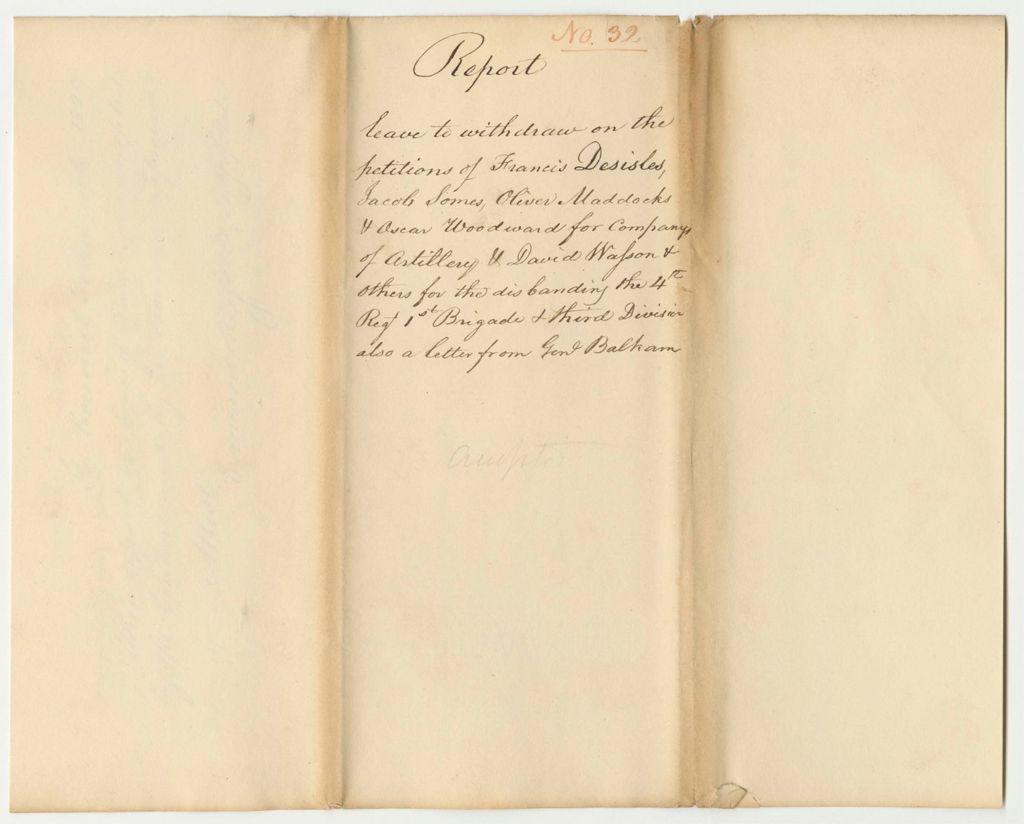 No. 32
Report
leave to withdraw on the
petitions of Francis Desisles,
Jacob Somes, Oliver Maddocks
& Oscar Woodward for Company
of Artillery & David Wasson &
others for the disbanding the 4th
Regt 1st Brigade & third Division
also a letter from Genl Balkam